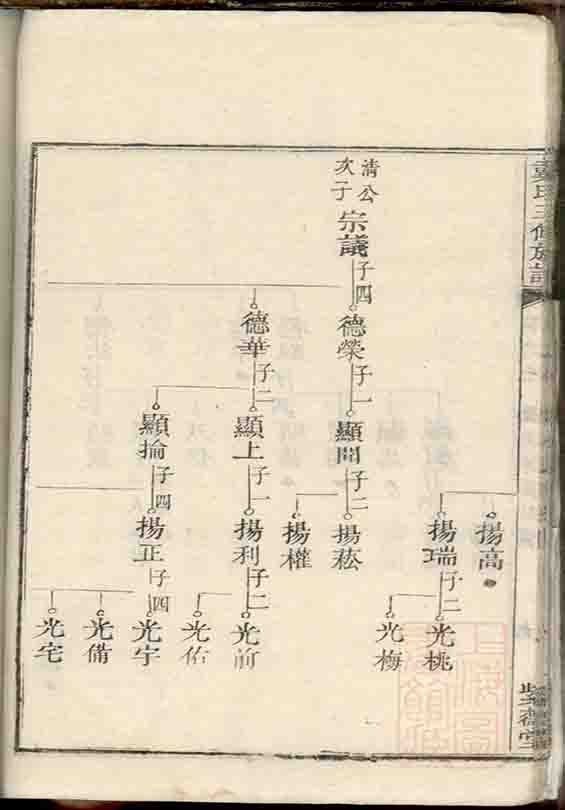 氏三修族譜
清公
次子
宗議
子四
德榮
子一
德華
子二
顯開
子二
顯上
子一
顯掄
子四
揚高
揚瑞
子二
揚菘
揚權
揚利
子二
揚正
子四
光桃
光梅
光前
光佑
光宇
光備
光宅